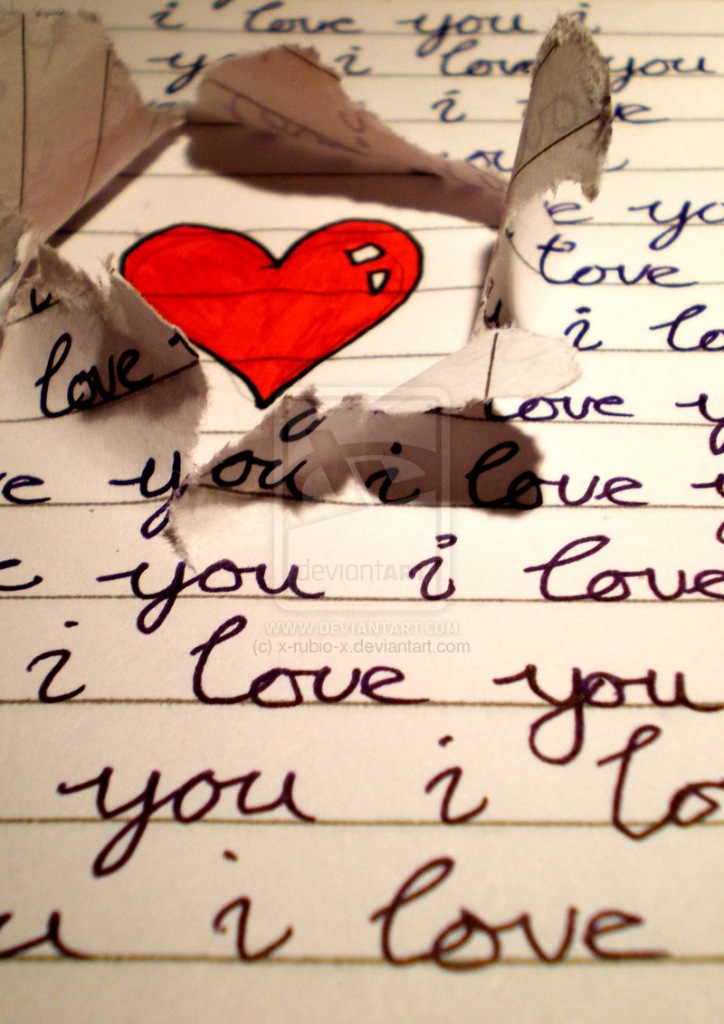 i love you i
i love you
i love
you
e you
love
i lo
love
love y
e you i love
you i love
deviantART
WWW.DEVIANTART.COM
(c) x-rubio-x.deviantart.com
i love you
you i lo
u i love